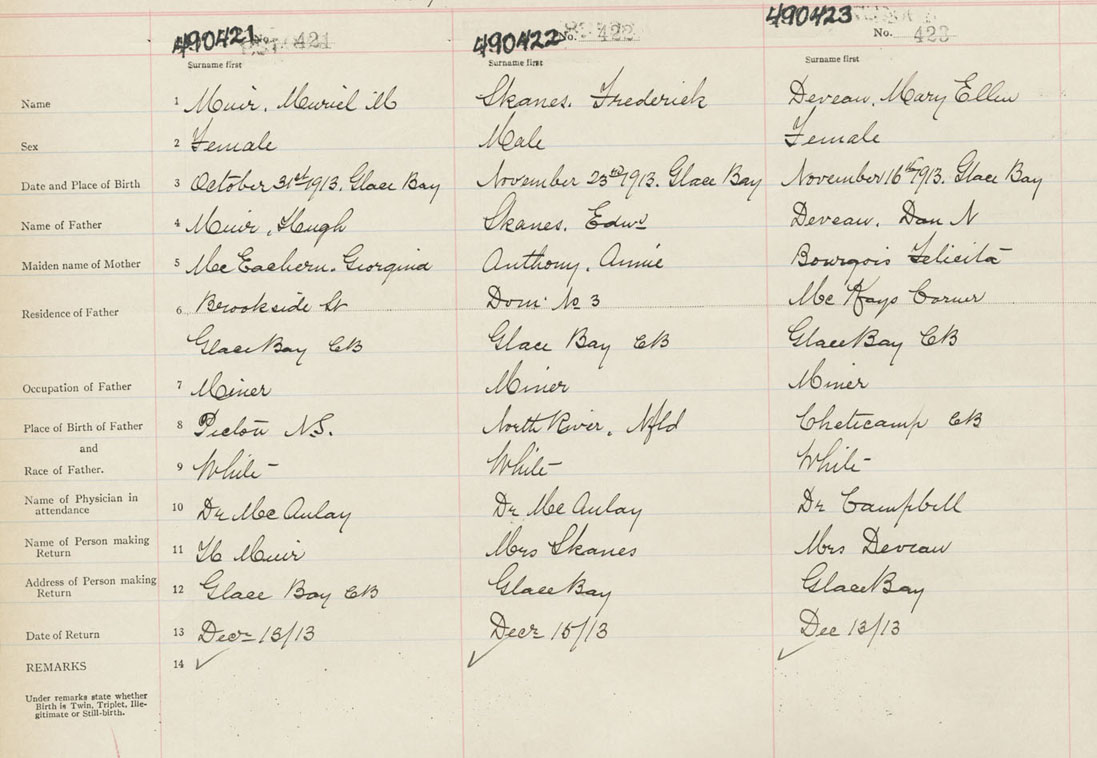 490421 No. 421 490422 No. 422 490423 No. 423
Surname first Surname first Surname first
Name 1 Muir, Muriel M Skanes, Frederick Deveau, Mary Ellen
Sex 2 Female Male Female
Date and Place of Birth 3 October 31st 1913. Glace Bay November 23rd 1913. Glace Bay November 16th 1913. Glace Bay
Name of Father 4 Muir, Hugh Skanes, Edwd Deveau, Dan N
Maiden name of Mother 5 Mc Eachern, Georgina Anthony, Annie Bourgois Felicita
Residence of Father 6 Brookside St Dom: No 3 Mc Kays Corner
Glace Bay CB Glace Bay CB Glace Bay CB
Occupation of Father 7 Miner Miner Miner
Place of Birth of Father 8 Pictou N.S. North River, Nfld Cheticamp CB
and
Race of Father. 9 White White White
Name of Physician in attendance 10 Dr Mc Aulay Dr Mc Aulay Dr Campbell
Name of Person making Return 11 H Muir Mrs Skanes Mrs Deveau
Address of Person making Return 12 Glace Bay CB Glace Bay Glace Bay
Date of Return 13 Decr 13/13 Decr 15/13 Dec 13/13
REMARKS 14 ✓ ✓ ✓
Under remarks state whether
Birth is Twin, Triplet, Ille-
gitimate or Still-birth.